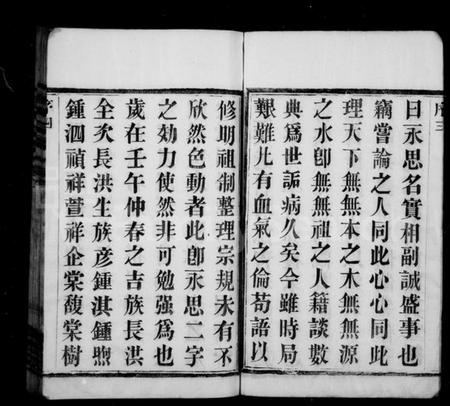 序三
曰永思名實相副誠盛事也
竊嘗論之人同此心心同此
理天下無無本之木無無源
之水卽無無祖之人籍談數
典爲世詬病久矣今雖時局
艱難凡有血氣之倫苟語以
修明祖制整理宗規未有不
欣然色動者此卽永思二字
之効力使然非可勉强爲也
歲在壬午仲春之吉族長洪
全矣長洪生族彥鍾淇鍾煦
鍾泗禎祥萱祥企棠馥棠樹
序四